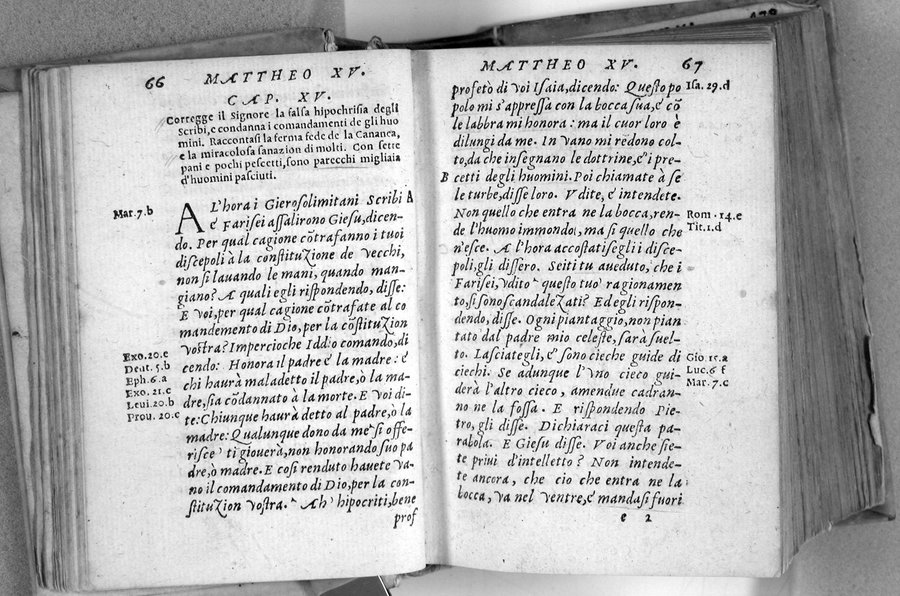 66 MATTHEO XV.
CAP. XV.
Corregge il Signore la falsa hipochrisia degli
Scribi, e condanna i comandamenti de gli huo
mini. Raccontasi la ferma fede de la Cananea,
e la miracolosa sanazion di molti. Con sette
pani e pochi pescetti, sono parecchi migliaia
d'huomini pasciuti.
Mar. 7.b
AL'hora i Gierosolimitani Scribi A
e' Farisei assalirono Giesu, dicen-
do. Per qual cagione cōtrafanno i tuoi
discepoli à la constituzione de vecchi,
non si lauando le mani, quando man-
giano? A quali egli rispondendo, disse:
E voi, per qual cagione cōtrafate al co
mandemento di Dio, per la cōstituzion
vostra? Impercioche Iddio comando, di
Exo. 20.c
cendo: Honora il padre e' la madre: e'
Deut. 5.b
chi haurà maladetto il padre, ò la ma-
Eph. 6.a
dre, sia cōdannato à la morte. E voi di-
Exo. 21.c
te: Chiunque haurà detto al padre, ò la
Leui. 20.b
madre: Qualunque dono da me si offe-
Prou. 20.c
risce ti giouerà, non honorando suo pa
dre, ò madre. E cosi renduto hauete va-
no il comandamento di Dio, per la con-
stituzion vostra. Ah' hipocriti, bene
prof
MATTHEO XV. 67
profeto di voi Isaia, dicendo: Questo po
Isa. 29.d
polo mi s'appressa con la bocca sua, e' cō
le labbra mi honora: ma il cuor loro è
dilungi da me. In vano mi rēdono col-
to, da che insegnano le dottrine, e' i pre-
B cetti degli huomini. Poi chiamate à se
le turbe, disse loro. Vdite, e' intendete.
Non quello che entra ne la bocca, ren-
Rom. 14.e
de l'huomo immondo, ma si quello che
Tit. 1.d
n'esce. A l'hora accostatisegli i disce-
poli, gli dissero. Seiti tu aueduto, che i
Farisei, vdito questo tuo ragionamen
to, si sono scandalezati? Ed egli rispon-
dendo, disse. Ogni piantaggio, non pian
tato dal padre mio celeste, sara suel-
to. Lasciategli, e' sono cieche guide di
Gio. 15.a
ciechi. Se adunque l'vno cieco gui-
Luc. 6 f
derà l'altro cieco, amendue cadran-
Mar. 7.c
no ne la fossa. E rispondendo Pie-
tro, gli disse. Dichiaraci questa pa-
rabola. E Giesu disse. Voi anche sie-
te priui d'intelletto? Non intende-
te ancora, che cio che entra ne la
bocca, va nel ventre, e' mandasi fuori
e 2